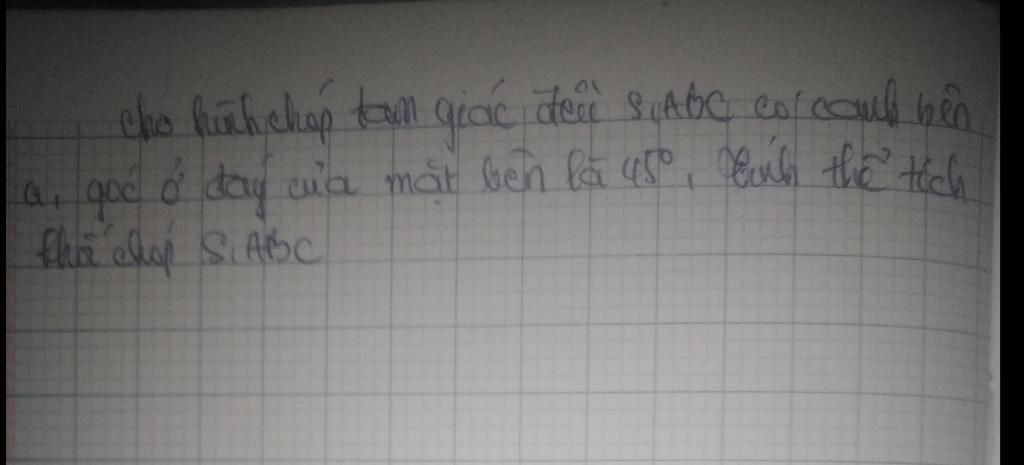 cho hình chóp tam giác đều S.ABC có cạnh bên
a, góc ở đáy của mặt bên là 45°, tính thể tích
khối chóp S.ABC